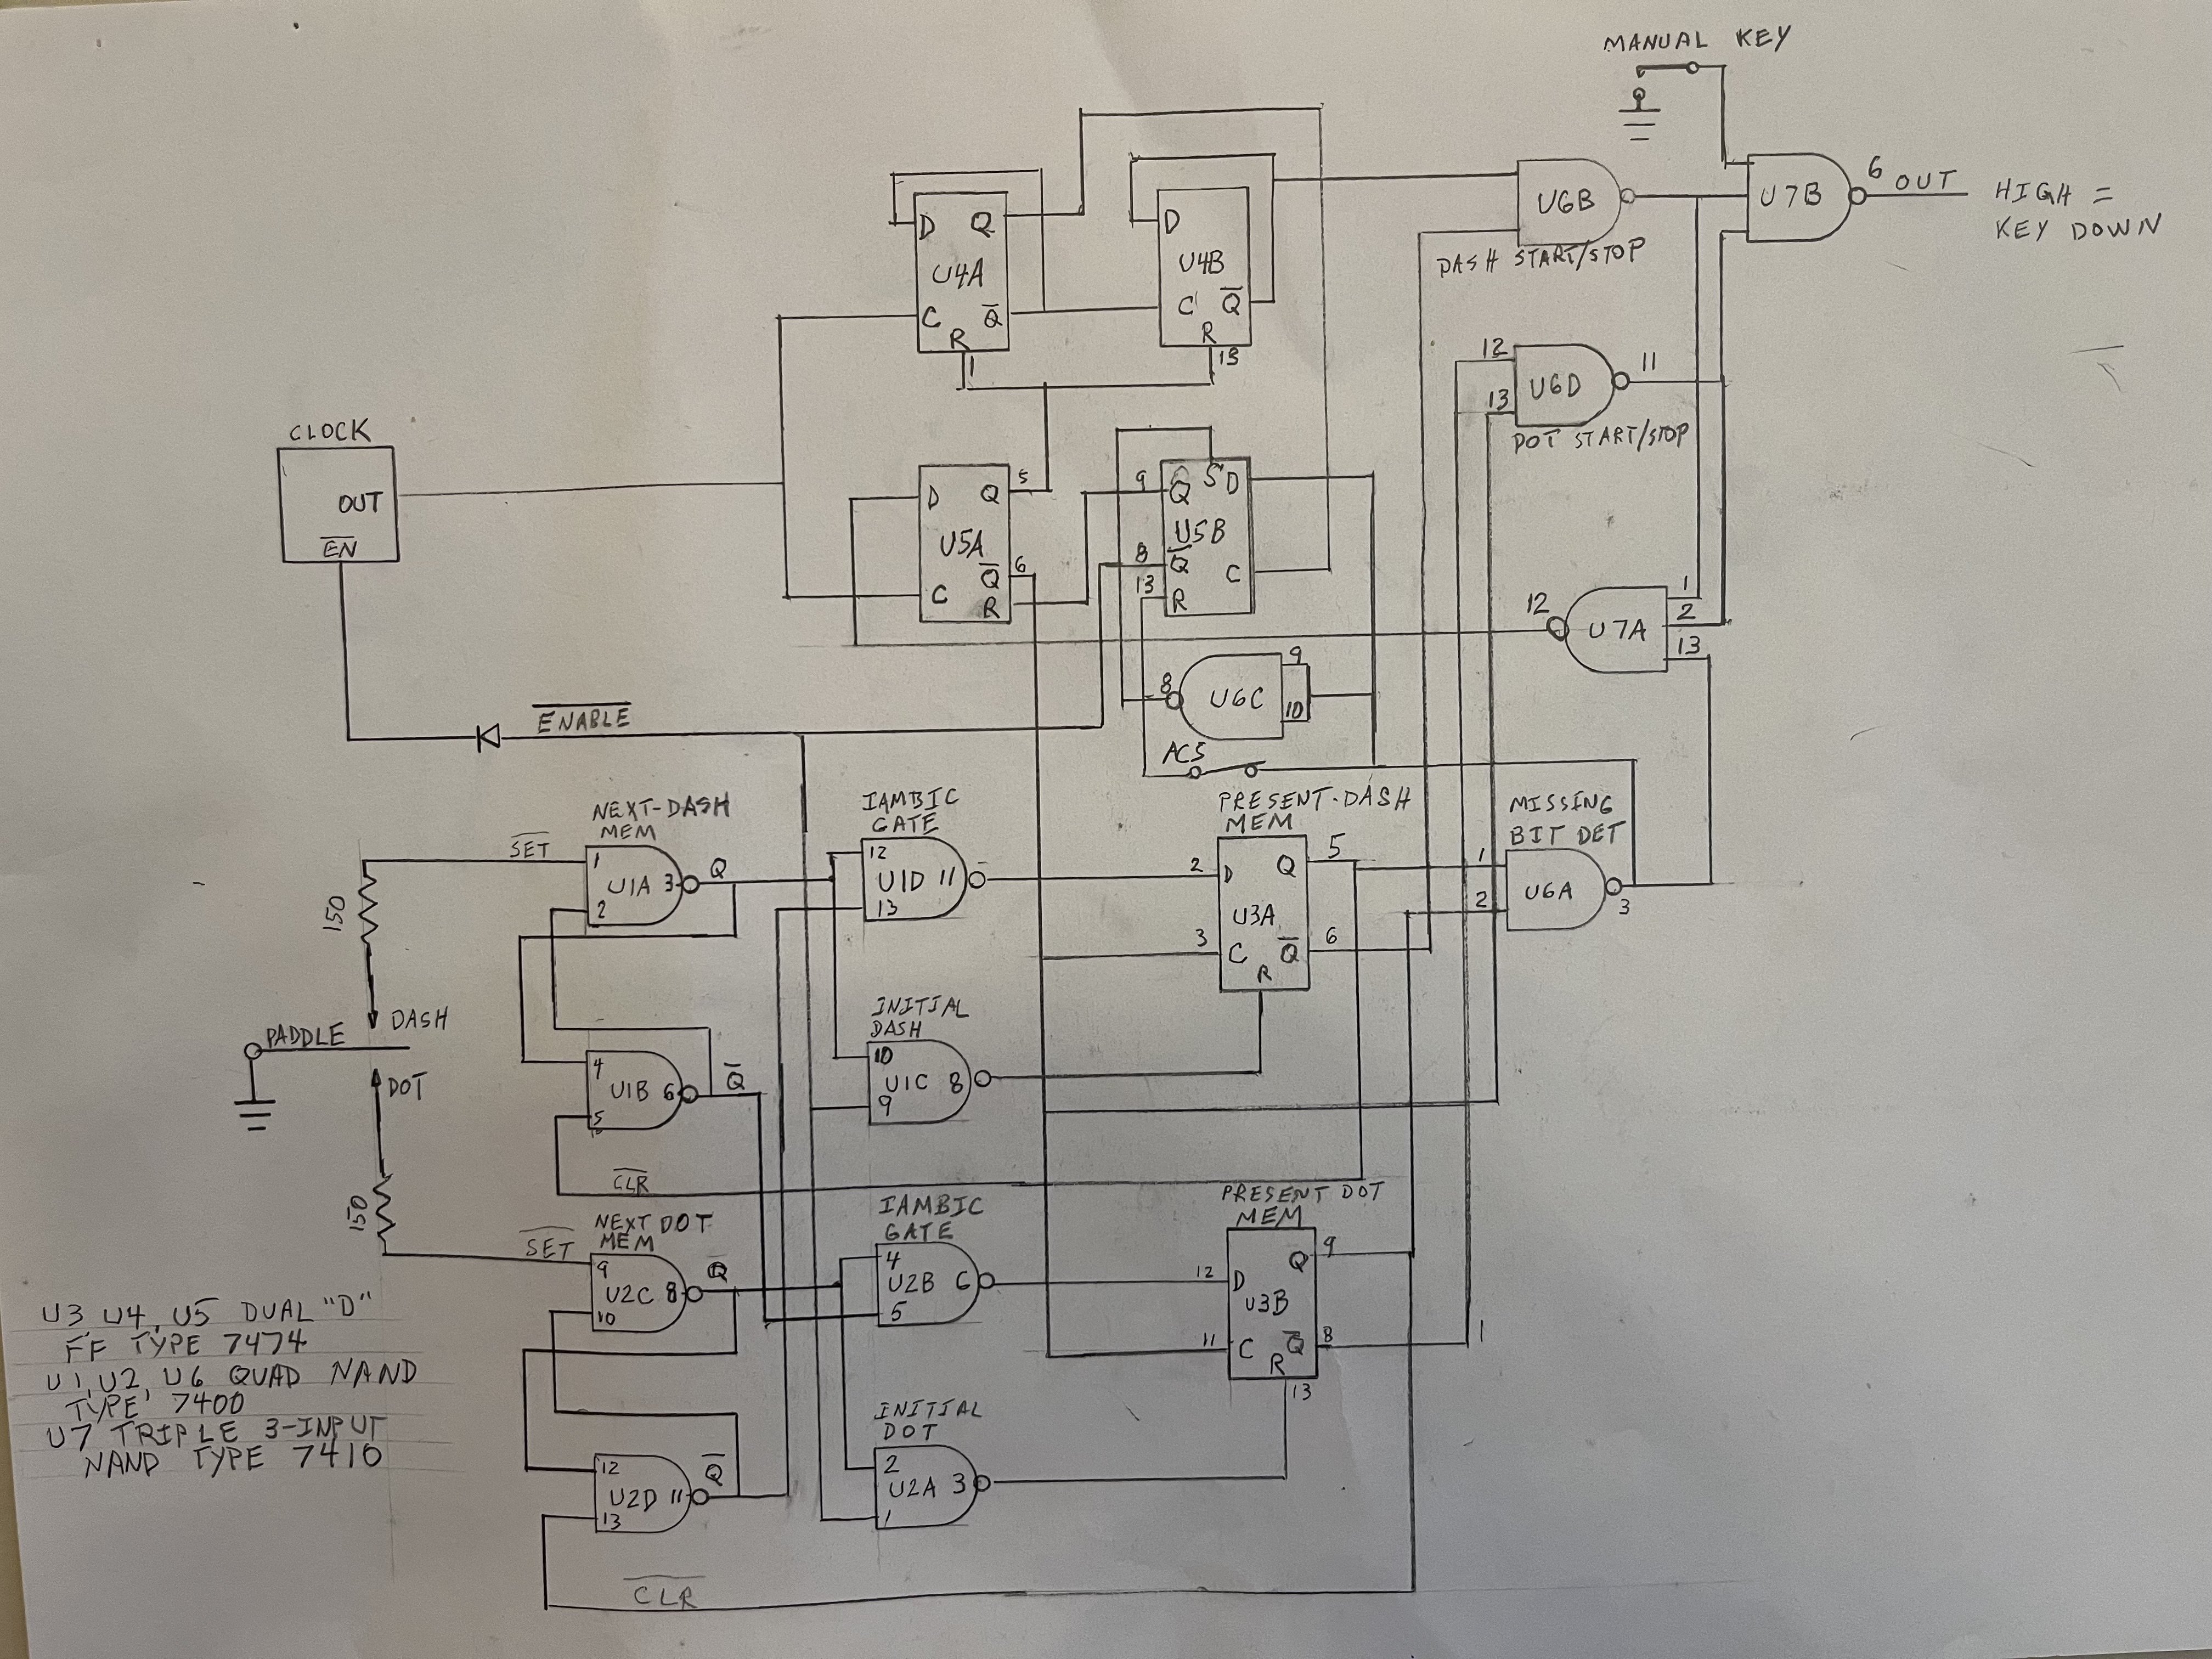 MANUAL KEY
D Q
U4A
C Q̅
R
1
D
U4B
C Q̅
R
13
U6B
DASH START/STOP
U7B
6 OUT
HIGH =
KEY DOWN
12
13
U6D
11
DOT START/STOP
CLOCK
OUT
E̅N̅
D Q
5
U5A
Q̅
6
C
R
9
Q S D
U5B
8
Q̅
C
13
R
12
U7A
1
2
13
8
U6C
9
10
ACS
E̅N̅A̅B̅L̅E̅
NEXT-DASH
MEM
S̅E̅T̅
1
U1A 3
2
Q
150
IAMBIC
GATE
12
U1D 11
13
PRESENT-DASH
MEM
2
D Q
5
U3A
3
C Q̅
6
R
MISSING
BIT DET
1
U6A
2
3
PADDLE
DASH
DOT
4
U1B 6
5
Q̅
INITIAL
DASH
10
U1C 8
9
C̅L̅R̅
150
NEXT DOT
MEM
S̅E̅T̅
9
U2C 8
10
Q
IAMBIC
GATE
4
U2B 6
5
PRESENT DOT
MEM
12
D Q
9
U3B
11
C Q̅
8
R
13
1
12
U2D 11
13
Q̅
INITIAL
DOT
2
U2A 3
1
C̅L̅R̅
U3 U4, U5 DUAL "D"
FF TYPE 7474
U1, U2, U6 QUAD NAND
TYPE 7400
U7 TRIPLE 3-INPUT
NAND TYPE 7410